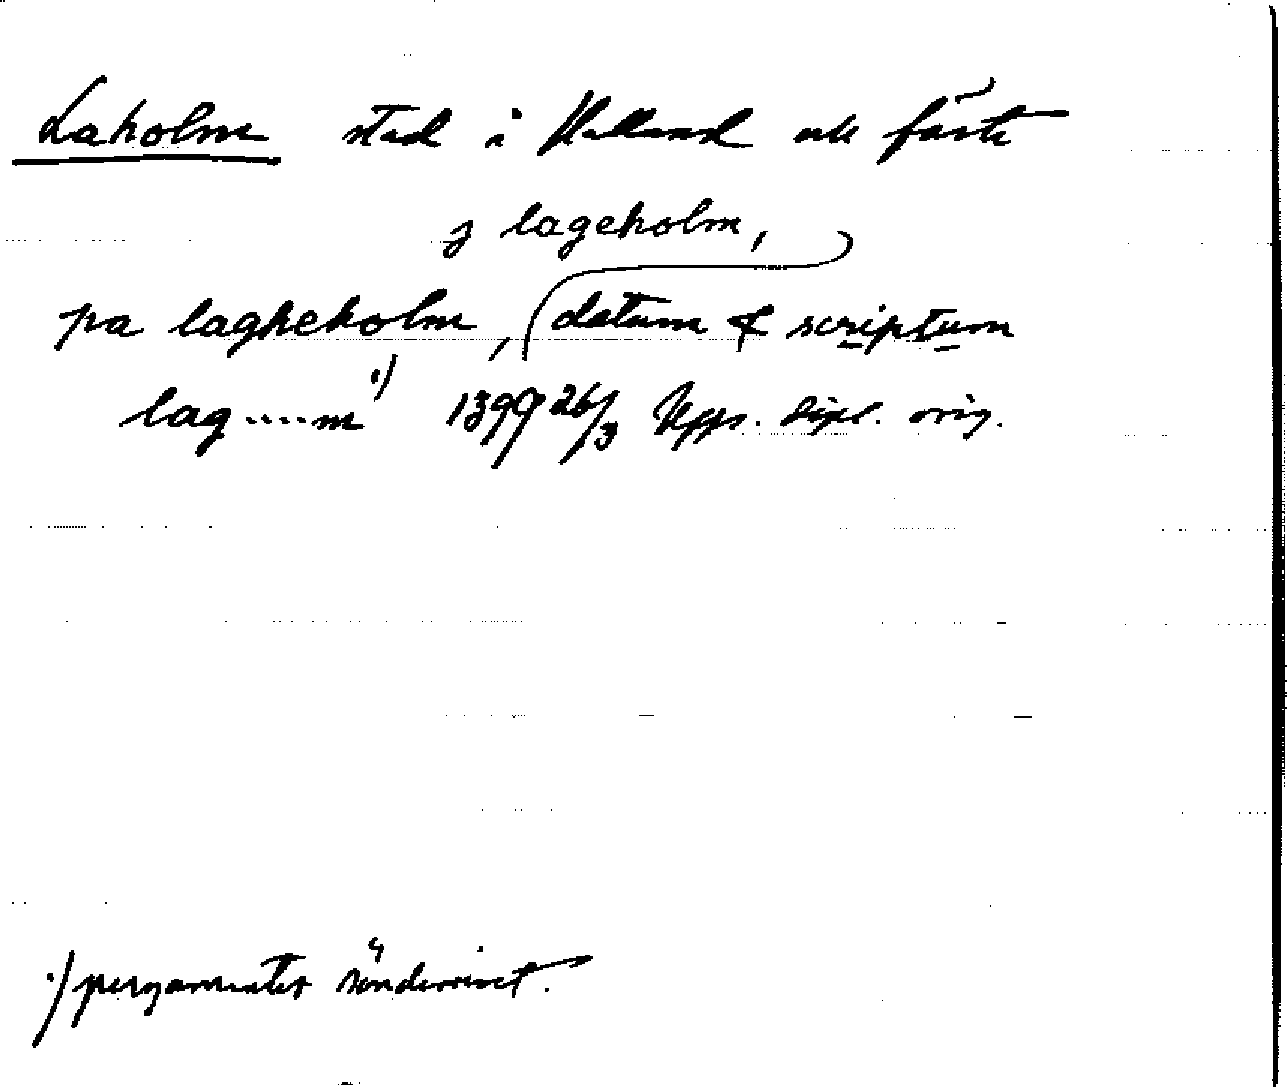 Laholm stad i Halland och fäste
j lageholm,
pa lagheholm, (datum & scriptum
lag.....m ·) 1399 26/3 Upps. dipl. orig.
·) pergamentet sönderrivet.